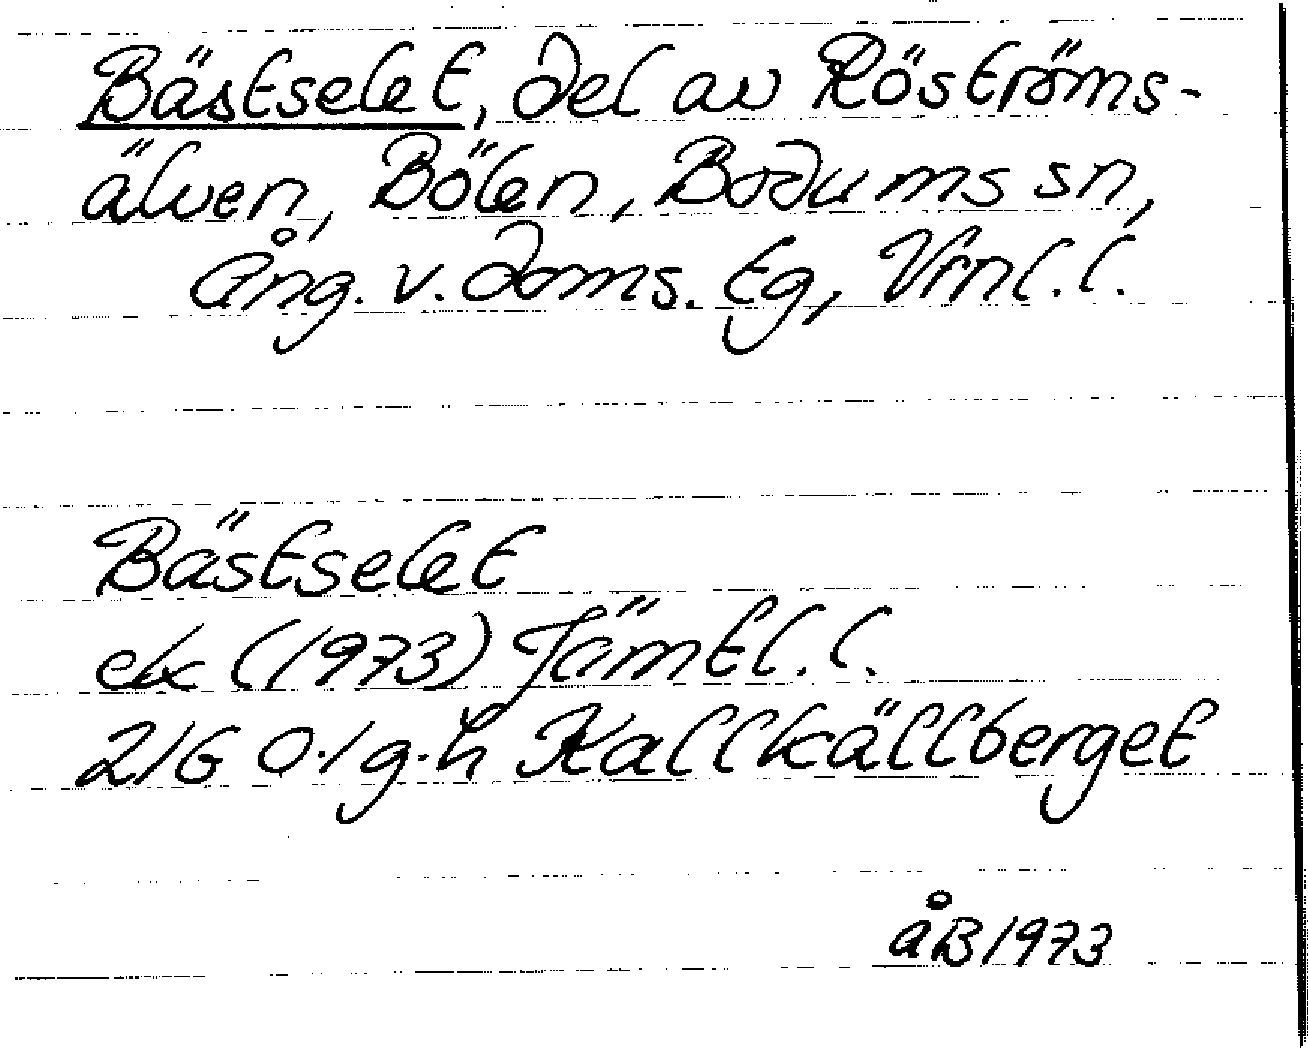 Bästselet, del av Röströms-
älven, Bölen, Bodums sn,
Ång. v. doms. tg, Vrnl. l.
Bästselet
ek (1973) Jämtl. l.
21G 0-1 g-h Kallkällberget
åB 1973